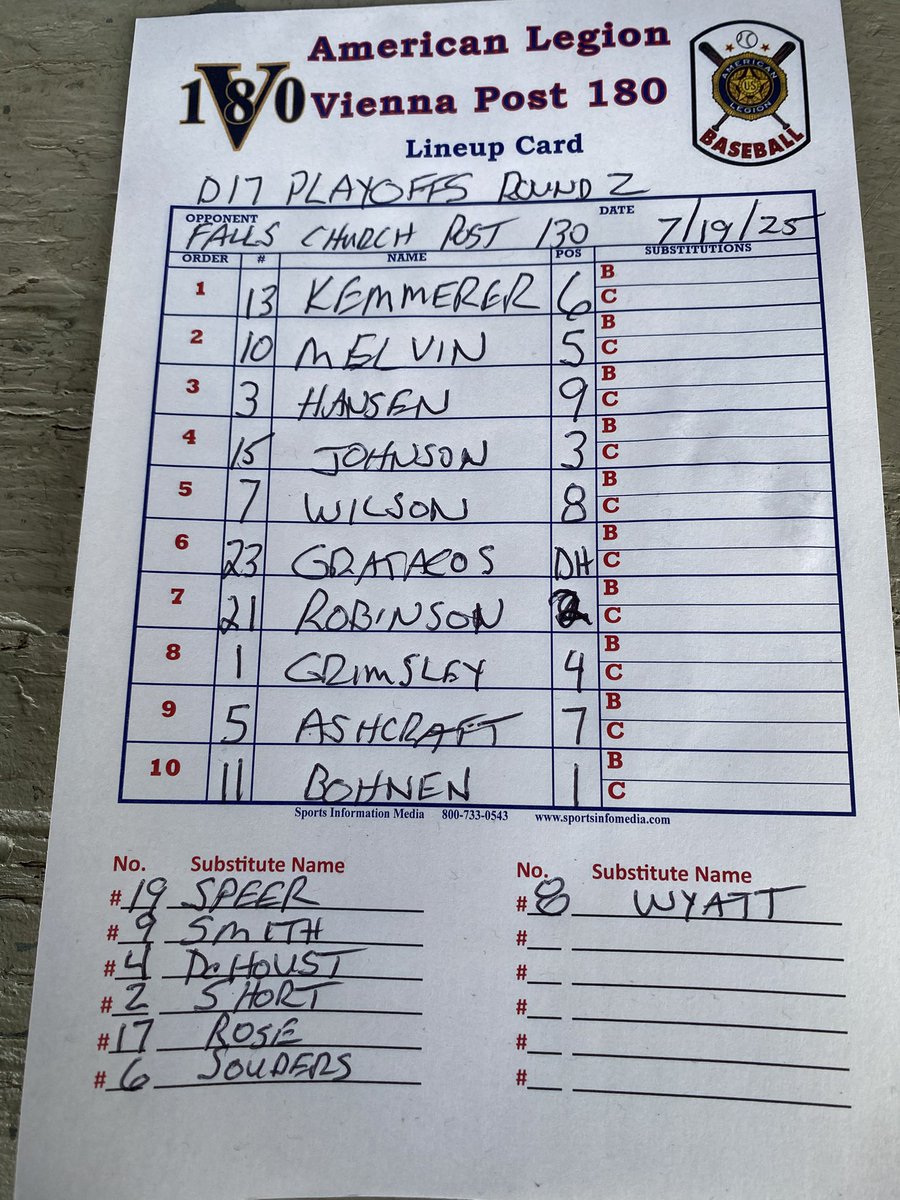 American Legion
180 Vienna Post 180
Lineup Card
AMERICAN LEGION
US
BASEBALL
D17 PLAYOFFS ROUND 2
OPPONENT DATE
FALLS CHURCH POST 130 7/19/25
ORDER # NAME POS SUBSTITUTIONS
1 13 KEMMERER 6 B C
2 10 MELVIN 5 B C
3 3 HANSEN 9 B C
4 15 JOHNSON 3 B C
5 7 WILSON 8 B C
6 23 GRATACOS DH B C
7 21 ROBINSON 2 B C
8 1 GRIMSLEY 4 B C
9 5 ASHCRAFT 7 B C
10 11 BOHNEN 1 B C
Sports Information Media 800-733-0543 www.sportsinfomedia.com
No. Substitute Name No. Substitute Name
#19 SPEER #8 WYATT
#9 SMITH #
#4 DeHOUST #
#2 SHORT #
#17 ROSE #
#6 SOUDERS #